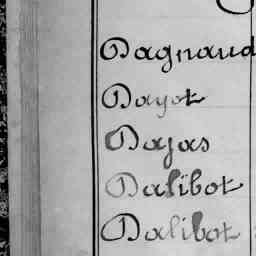 Dagnaud
Dayot
Dajas
Dalibot
Dalibot